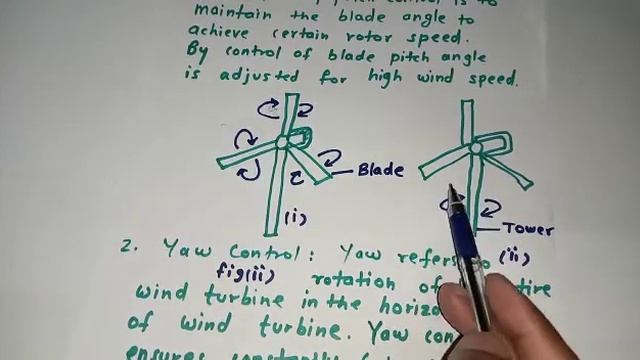 maintain the blade angle to
achieve certain rotor speed.
By control of blade pitch angle
is adjusted for high wind speed.
Blade
(i)
Tower
(ii)
2. Yaw control: Yaw refers
fig(ii) rotation of
wind turbine in the
of wind turbine. Yaw
ensures constantly